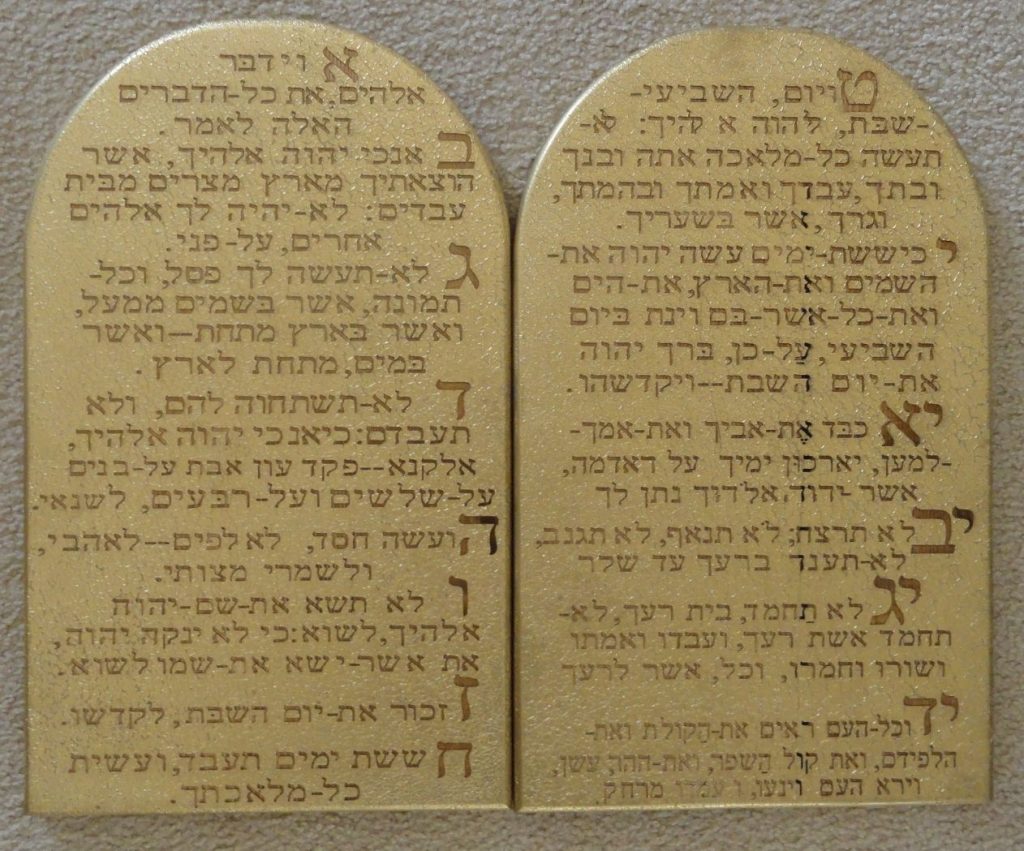 א וידבר
אלהים, את כל-הדברים
האלה לאמר.
ב אנכי יהוה אלהיך, אשר
הוצאתיך מארץ מצרים מבית
עבדים: לא-יהיה לך אלהים
אחרים, על-פני.
ג לא-תעשה לך פסל, וכל-
תמונה, אשר בשמים ממעל,
ואשר בארץ מתחת--ואשר
במים, מתחת לארץ.
ד לא-תשתחוה להם, ולא
תעבדם: כיאנכי יהוה אלהיך,
אלקנא--פקד עון אבת על-בנים
על-שלשים ועל-רבעים, לשנאי.
ה ועשה חסד, לאלפים--לאהבי,
ולשמרי מצותי.
ו לא תשא את-שם-יהוה
אלהיך, לשוא: כי לא ינקה יהוה,
את אשר-ישא את-שמו לשוא.
ז זכור את-יום השבת, לקדשו.
ח ששת ימים תעבד, ועשית
כל-מלאכתך.
ט ויום, השביעי-
-שבת, ליהוה א להיך: לא-
תעשה כל-מלאכה אתה ובנך
ובתך, עבדך ואמתך ובהמתך,
וגרך, אשר בשעריך.
י כיששת-ימים עשה יהוה את-
השמים ואת-הארץ, את-הים
ואת-כל-אשר-בם וינח ביום
השביעי, עַל-כן, ברך יהוה
את-יום השבת--ויקדשהו.
יא כבד אֶת-אביך ואת-אמך-
-למען, יארכוּן ימיך על דאדמה,
אשר -ידוד, אלדיך נתן לך
יב לא תרצח; לא תנאף, לא תגנב,
לא-תענד ברעך עד שלר
יג לא תַחמד, בית רעך, לא-
תחמד אשת רעך, ועבדו ואמתו
ושורו וחמרו, וכל, אשר לרעך
יד וכל-העם ראים את-הַקולת ואת-
הלפידם, ואת קול הַשפר, ואת-ההר, עשן,
וירא העם וינעו, ו עמדו מרחק.